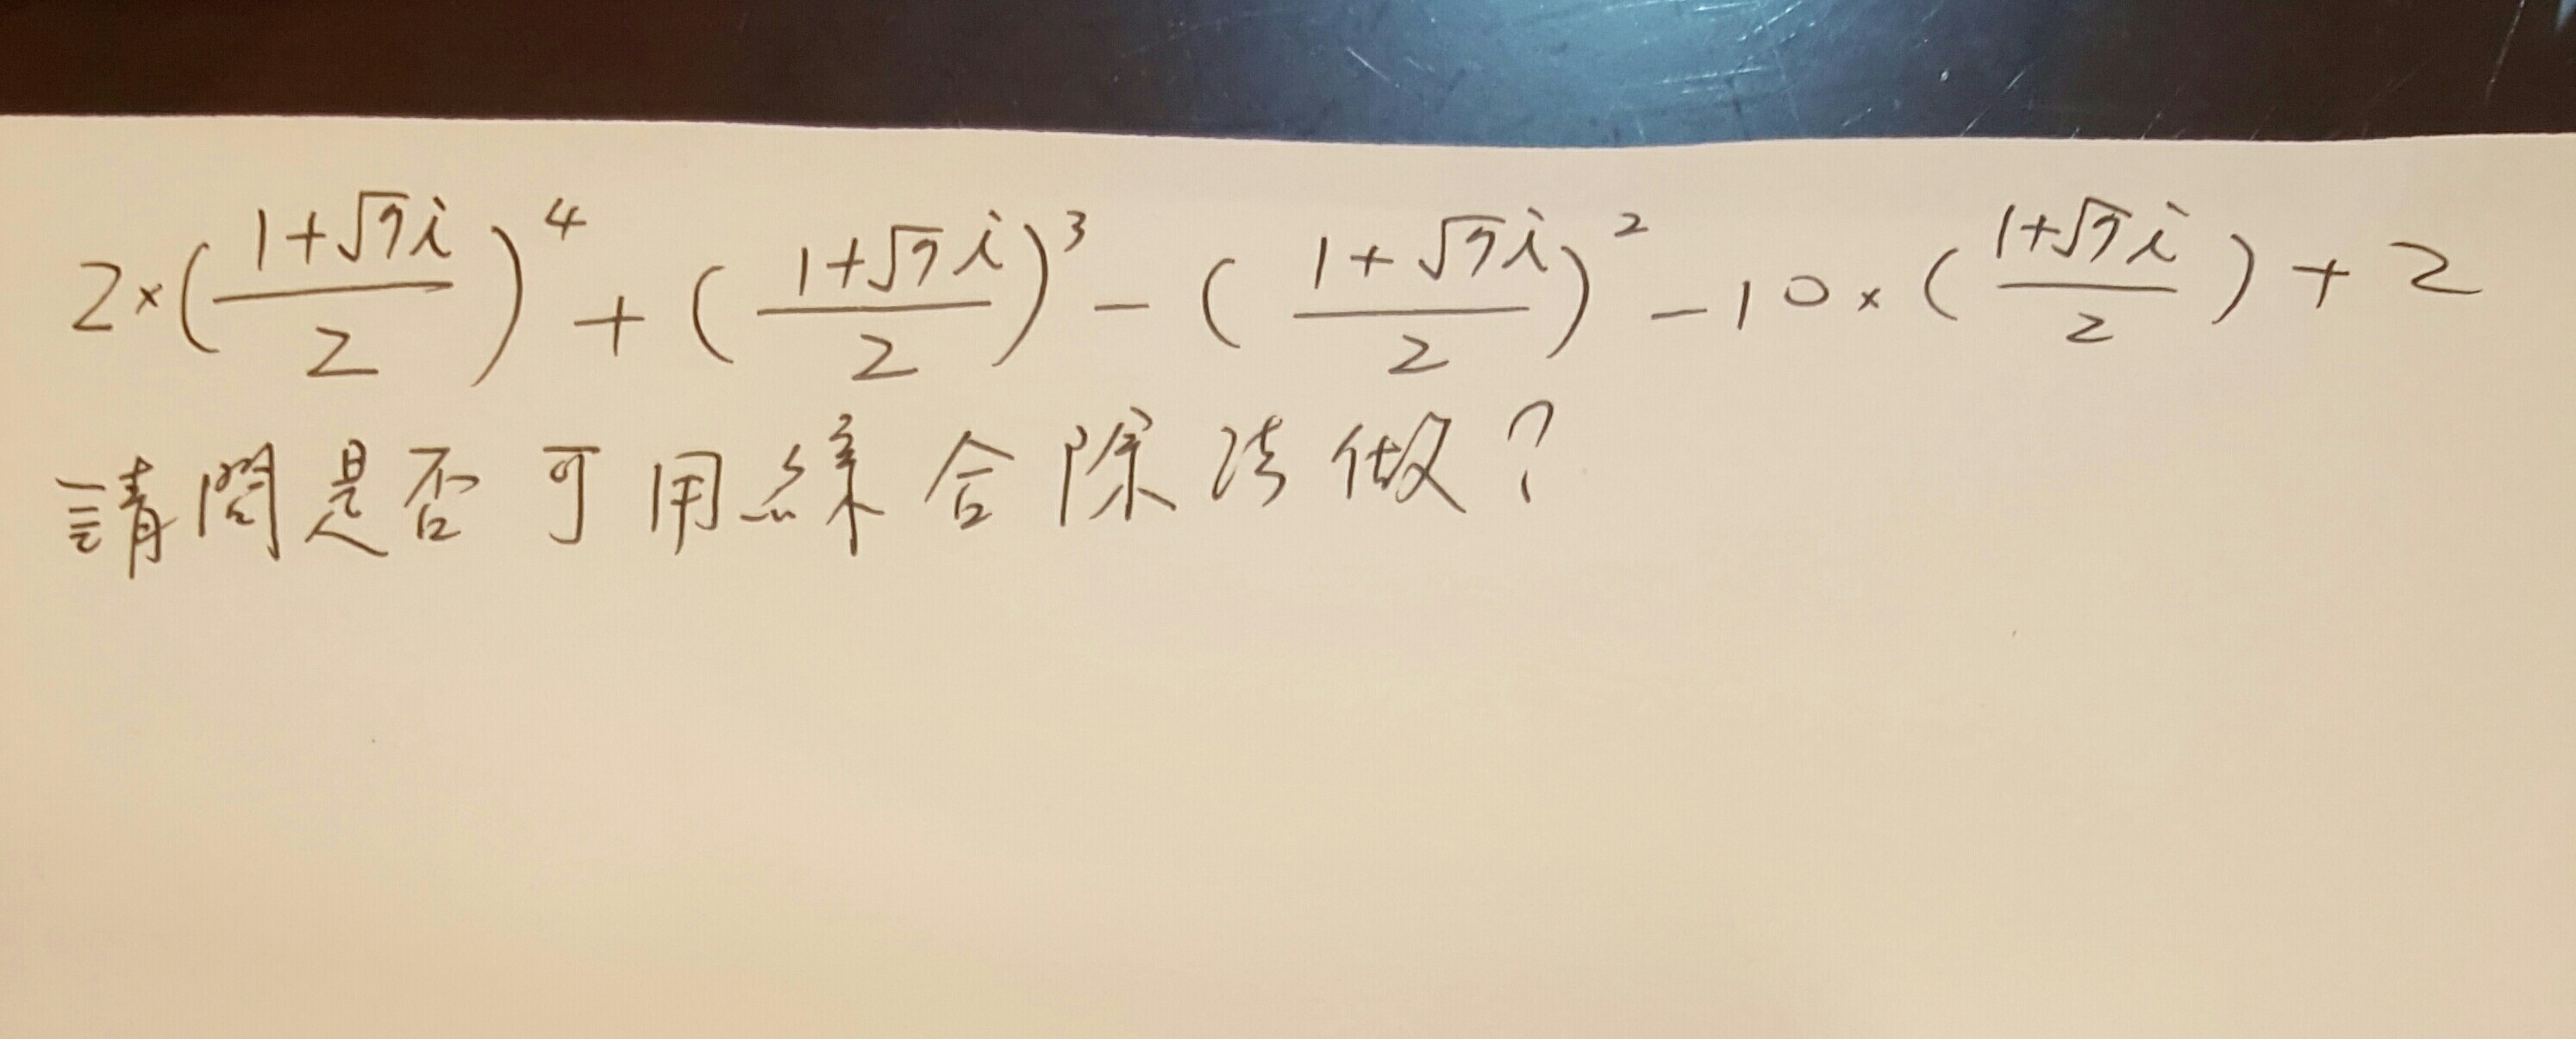 2×(\frac{1+√7i}{2})^4 + (\frac{1+√7i}{2})^3 − (\frac{1+√7i}{2})^2 − 10×(\frac{1+√7i}{2}) + 2
請問是否可用綜合除法做?